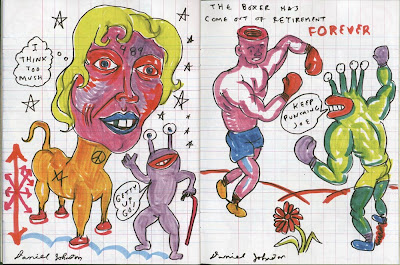 I
THINK
TOO
MUSH
GETTY
UP
GO!
Daniel Johnston
THE BOXER HAS
COME OUT OF RETIREMENT
FOREVER
KEEP
PUNCHING
JOE
Daniel Johnston